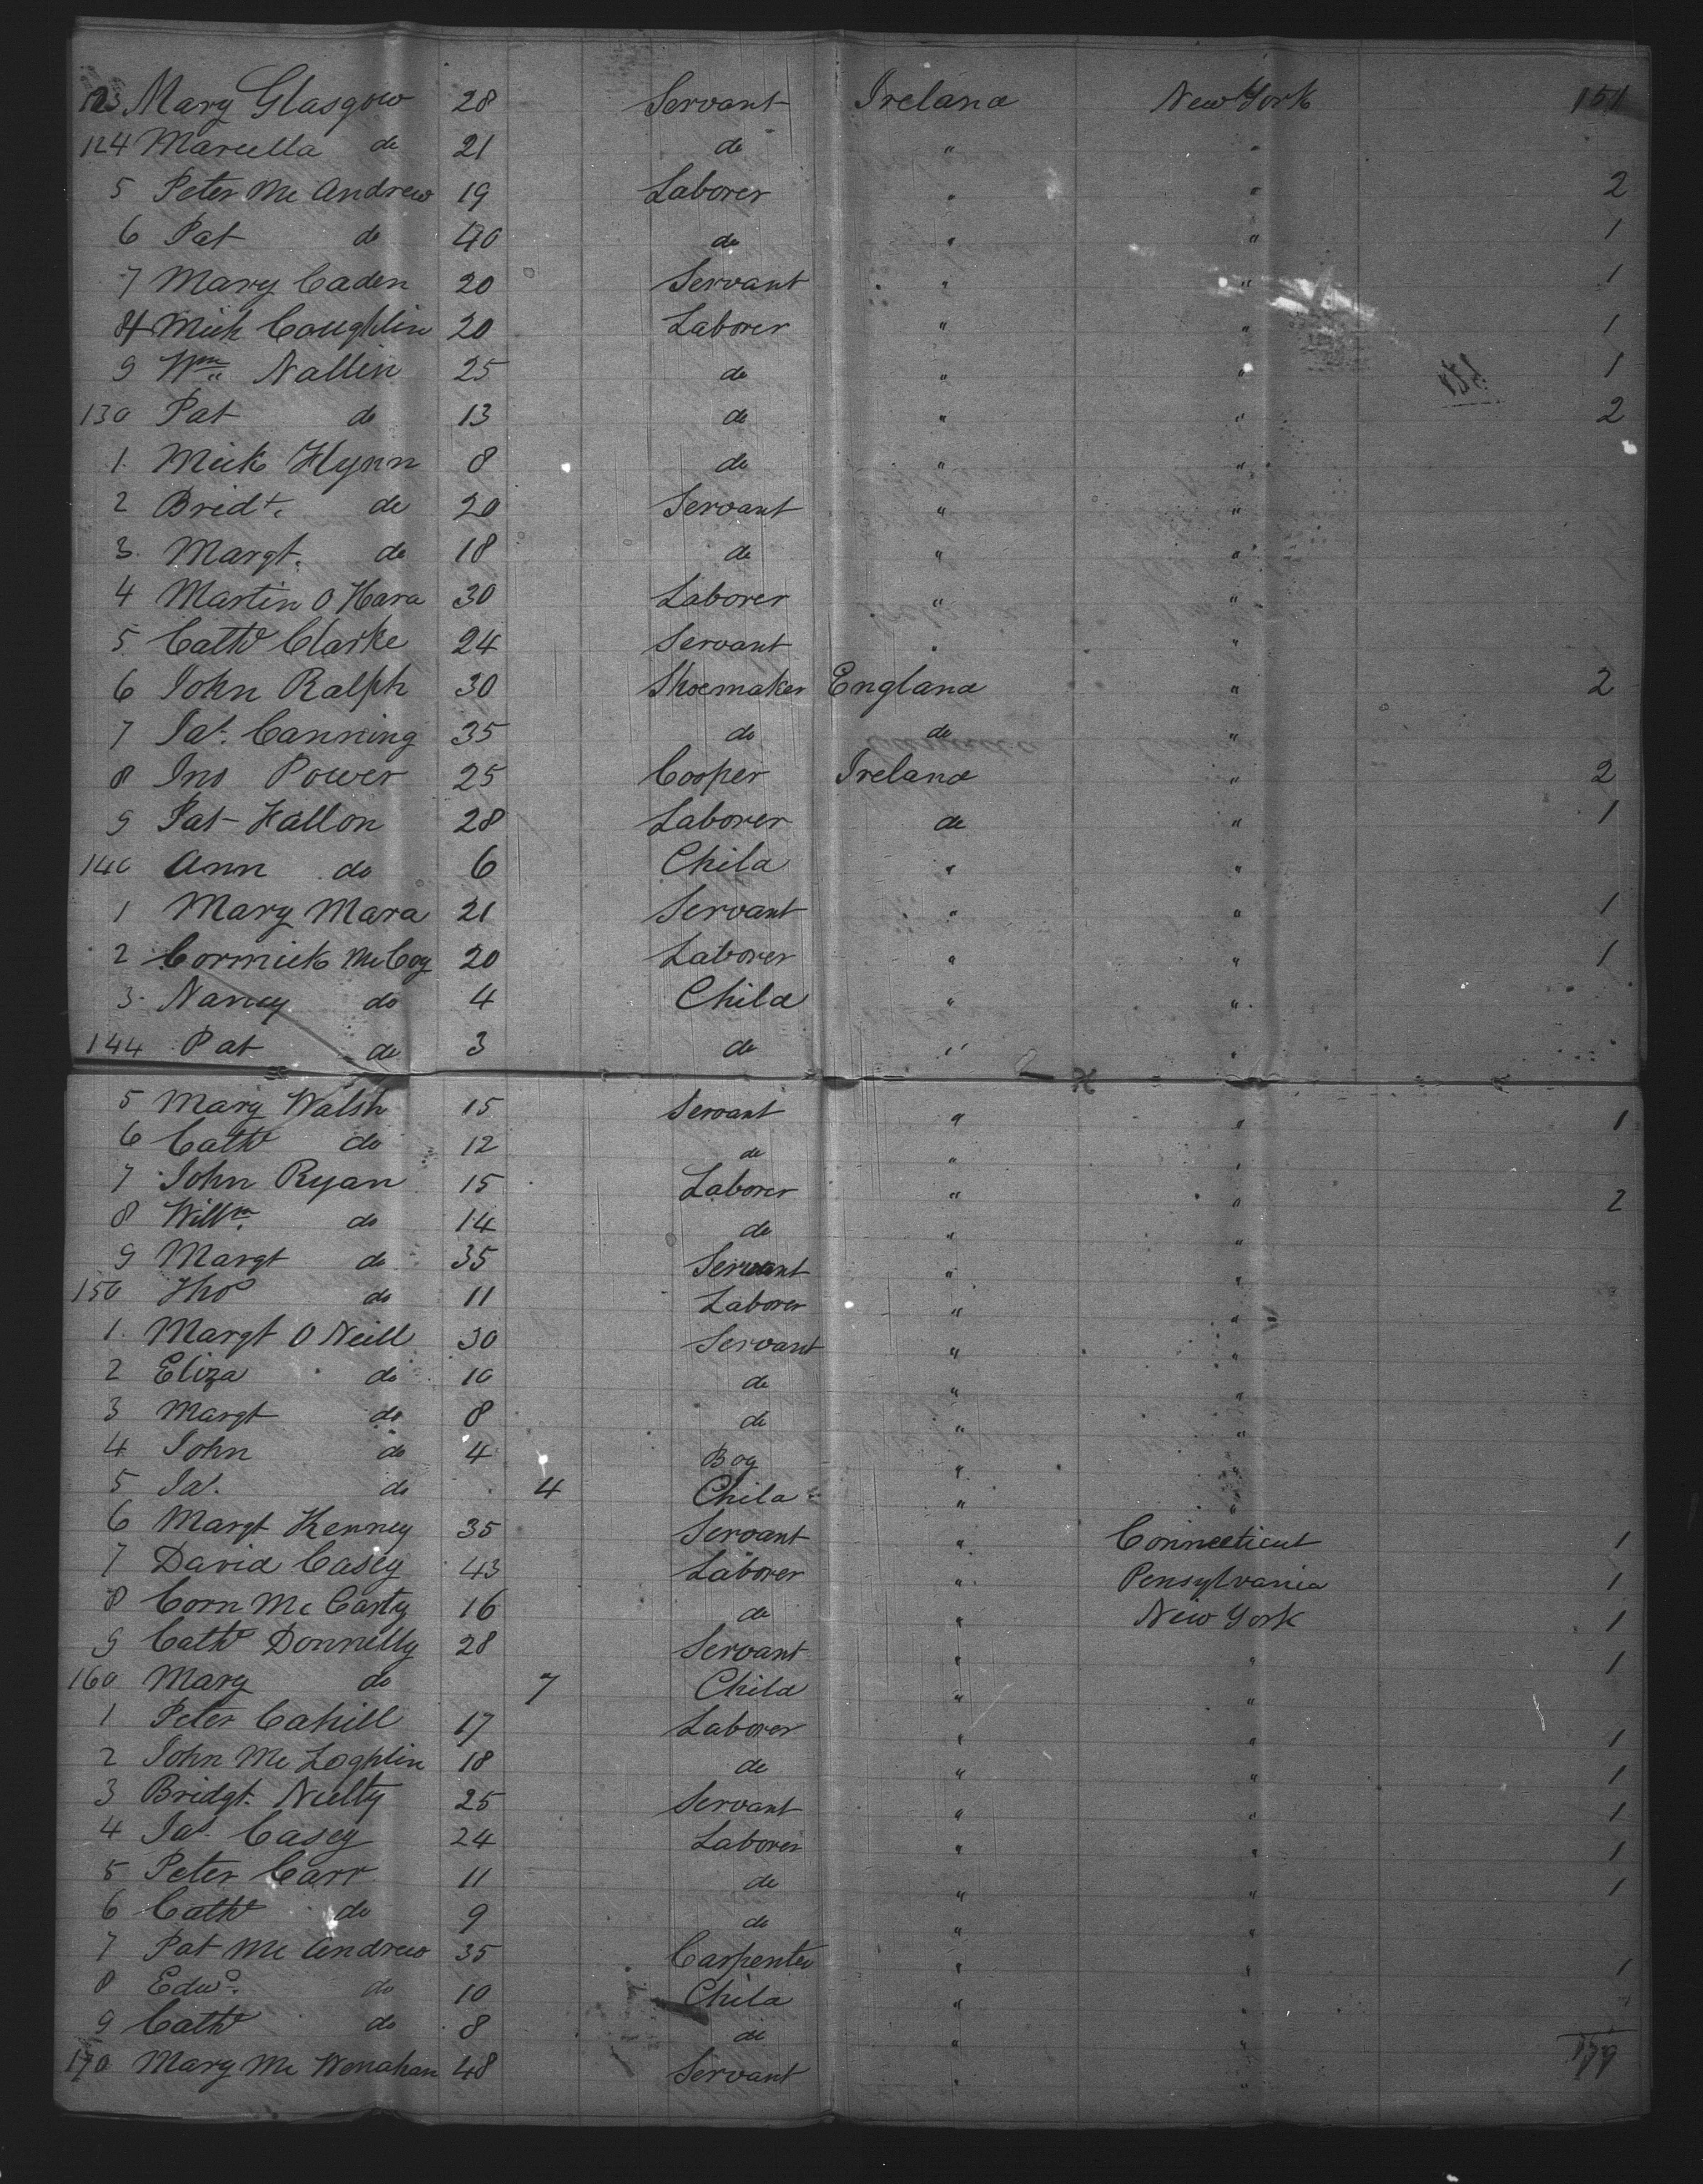 123 Mary Glasgow 28 Servant Ireland New York 151
124 Marcella do 21 do " "
5 Peter Mc Andrew 19 Laborer " " 2
6 Pat do 40 do " " 1
7 Mary Caden 20 Servant " " 1
8 Mick Coughlin 20 Laborer " " 1
9 Wm Nallin 25 do " " 1
130 Pat do 13 do " " 2
1 Mick Flynn 8 do " "
2 Bridt. do 20 Servant " "
3 Margt. do 18 do " "
4 Martin O Hara 30 Laborer " "
5 Cathe Clarke 24 Servant " "
6 John Ralph 30 Shoemaker England " 2
7 Jas. Canning 35 do do "
8 Jno Power 25 Cooper Ireland " 2
9 Pat Fallon 28 Laborer do " 1
140 Ann do 6 Child " "
1 Mary Mara 21 Servant " " 1
2 Cormick McCoy 20 Laborer " " 1
3 Nancy do 4 Child " "
144 Pat do 3 do " "
5 Mary Walsh 15 Servant " " 1
6 Cathe do 12 do " "
7 John Ryan 15 Laborer " " 2
8 Willm. do 14 do " "
9 Margt do 35 Servant " "
150 Thos do 11 Laborer " "
1 Margt O Neill 30 Servant " "
2 Eliza do 10 do " "
3 Margt do 8 do " "
4 John do 4 Boy " "
5 Jas. do 4 Child " "
6 Margt Kenney 35 Servant " Connecticut 1
7 David Casey 43 Laborer " Pensylvania 1
8 Corn Mc Carty 16 do " New York 1
9 Cathe Donnelly 28 Servant " " 1
160 Mary do 7 Child " "
1 Peter Cahill 17 Laborer " " 1
2 John Mc Loghlin 18 do " " 1
3 Bridgt. Nulty 25 Servant " " 1
4 Jas. Casey 24 Laborer " " 1
5 Peter Carr 11 do " " 1
6 Cathe do 9 do " "
7 Pat Mc Andrew 35 Carpenter " " 1
8 Edwd. do 10 Child " "
9 Cathe do 8 do " "
170 Mary Mc Wenahan 48 Servant " "